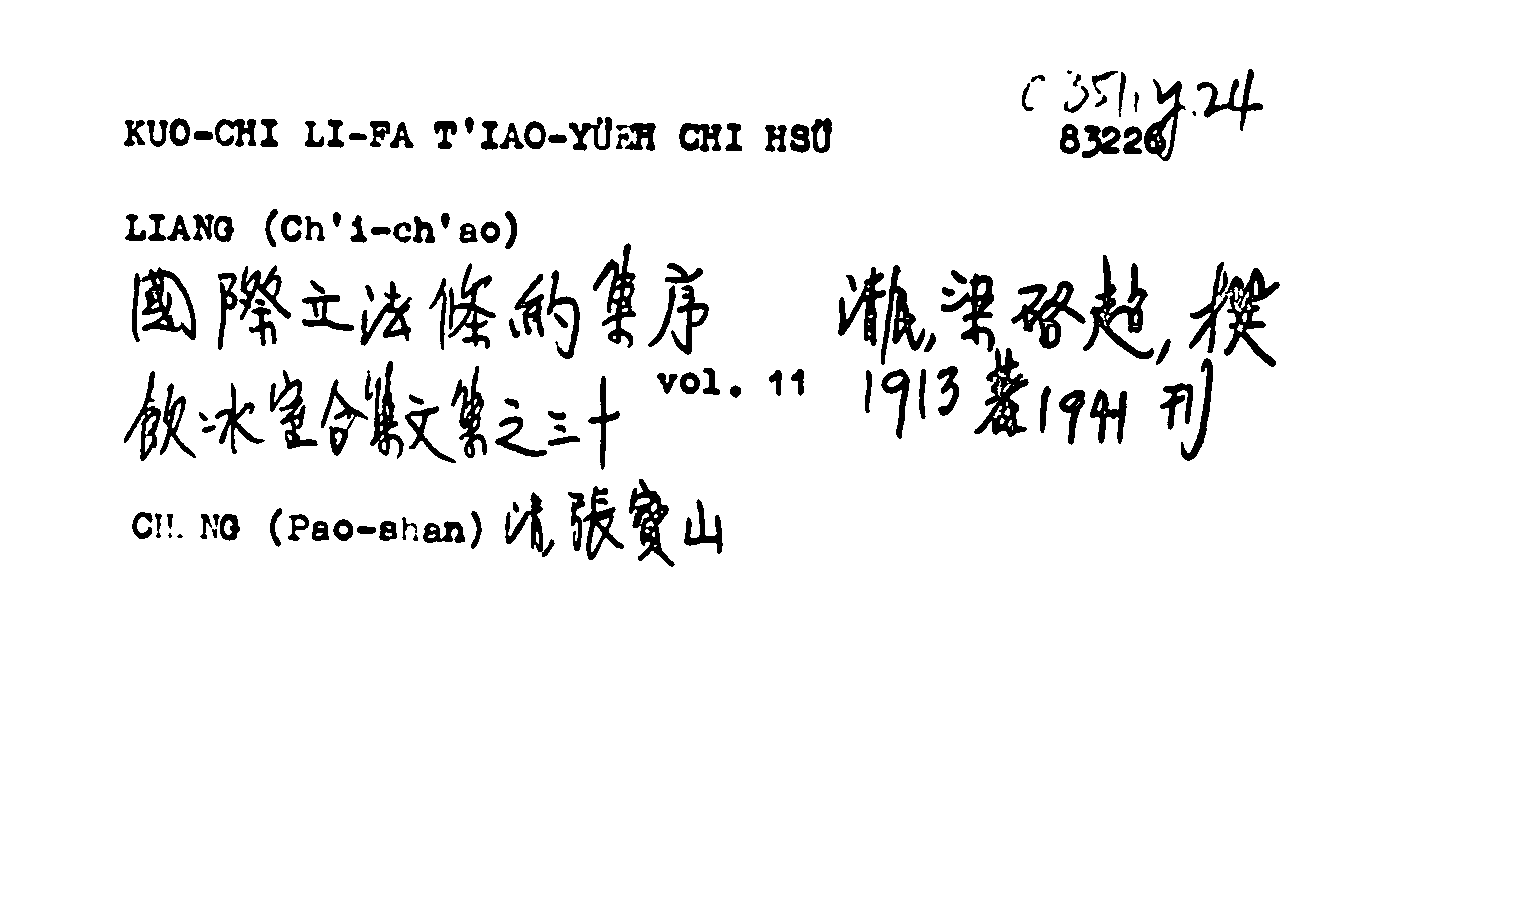 C 351. y.24
KUO-CHI LI-FA T'IAO-YÜEH CHI HSÜ 83226
LIANG (Ch'i-ch'ao)
國際立法條約集序 清, 梁啓超, 撰
飲冰室合集文集之三十 vol. 11 1913 著 1941 刊
(Pao-shan) 清, 張寶山